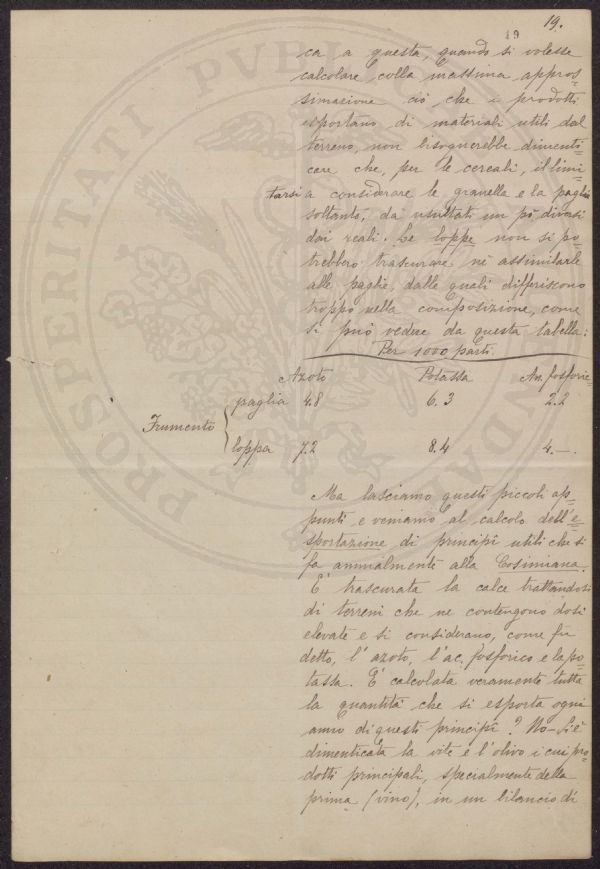 19.
19
ca a questa, quando si volesse
calcolare colla massima appros=
simazione ciò che i prodotti
esportano di materiali utili dal
terreno, non bisognerebbe dimenti=
care che, per le cereali, il limi=
tarsi a considerare le granella e la paglia
soltanto, dà risultati un pò diversi
dai reali. Le loppe non si po=
trebbero trascurare nè assimilarle
alle paglie, dalle quali differiscono
troppo nella composizione, come
si può vedere da questa tabella:
Per 1000 parti.
Azoto Potassa An. fosforic=
paglia 4.8 6.3 2.2
Frumento
loppa 7.2 8.4 4.—.
Ma lasciamo questi piccoli ap=
punti e veniamo al calcolo dell'e=
sportazione di principî utili che si
fa annualmente alla Cosimiana.
E' trascurata la calce trattandosi
di terreni che ne contengono dosi
elevate e si considerano, come fu
detto, l'azoto, l'ac. fosforico e la po=
tassa. E' calcolata veramente tutta
la quantità che si esporta ogni
anno di questi principî? No. Si è
dimenticata la vite e l'olivo i cui pro=
dotti principali, specialmente della
prima (vino), in un bilancio di
PROSPERITATI PVBLICAE